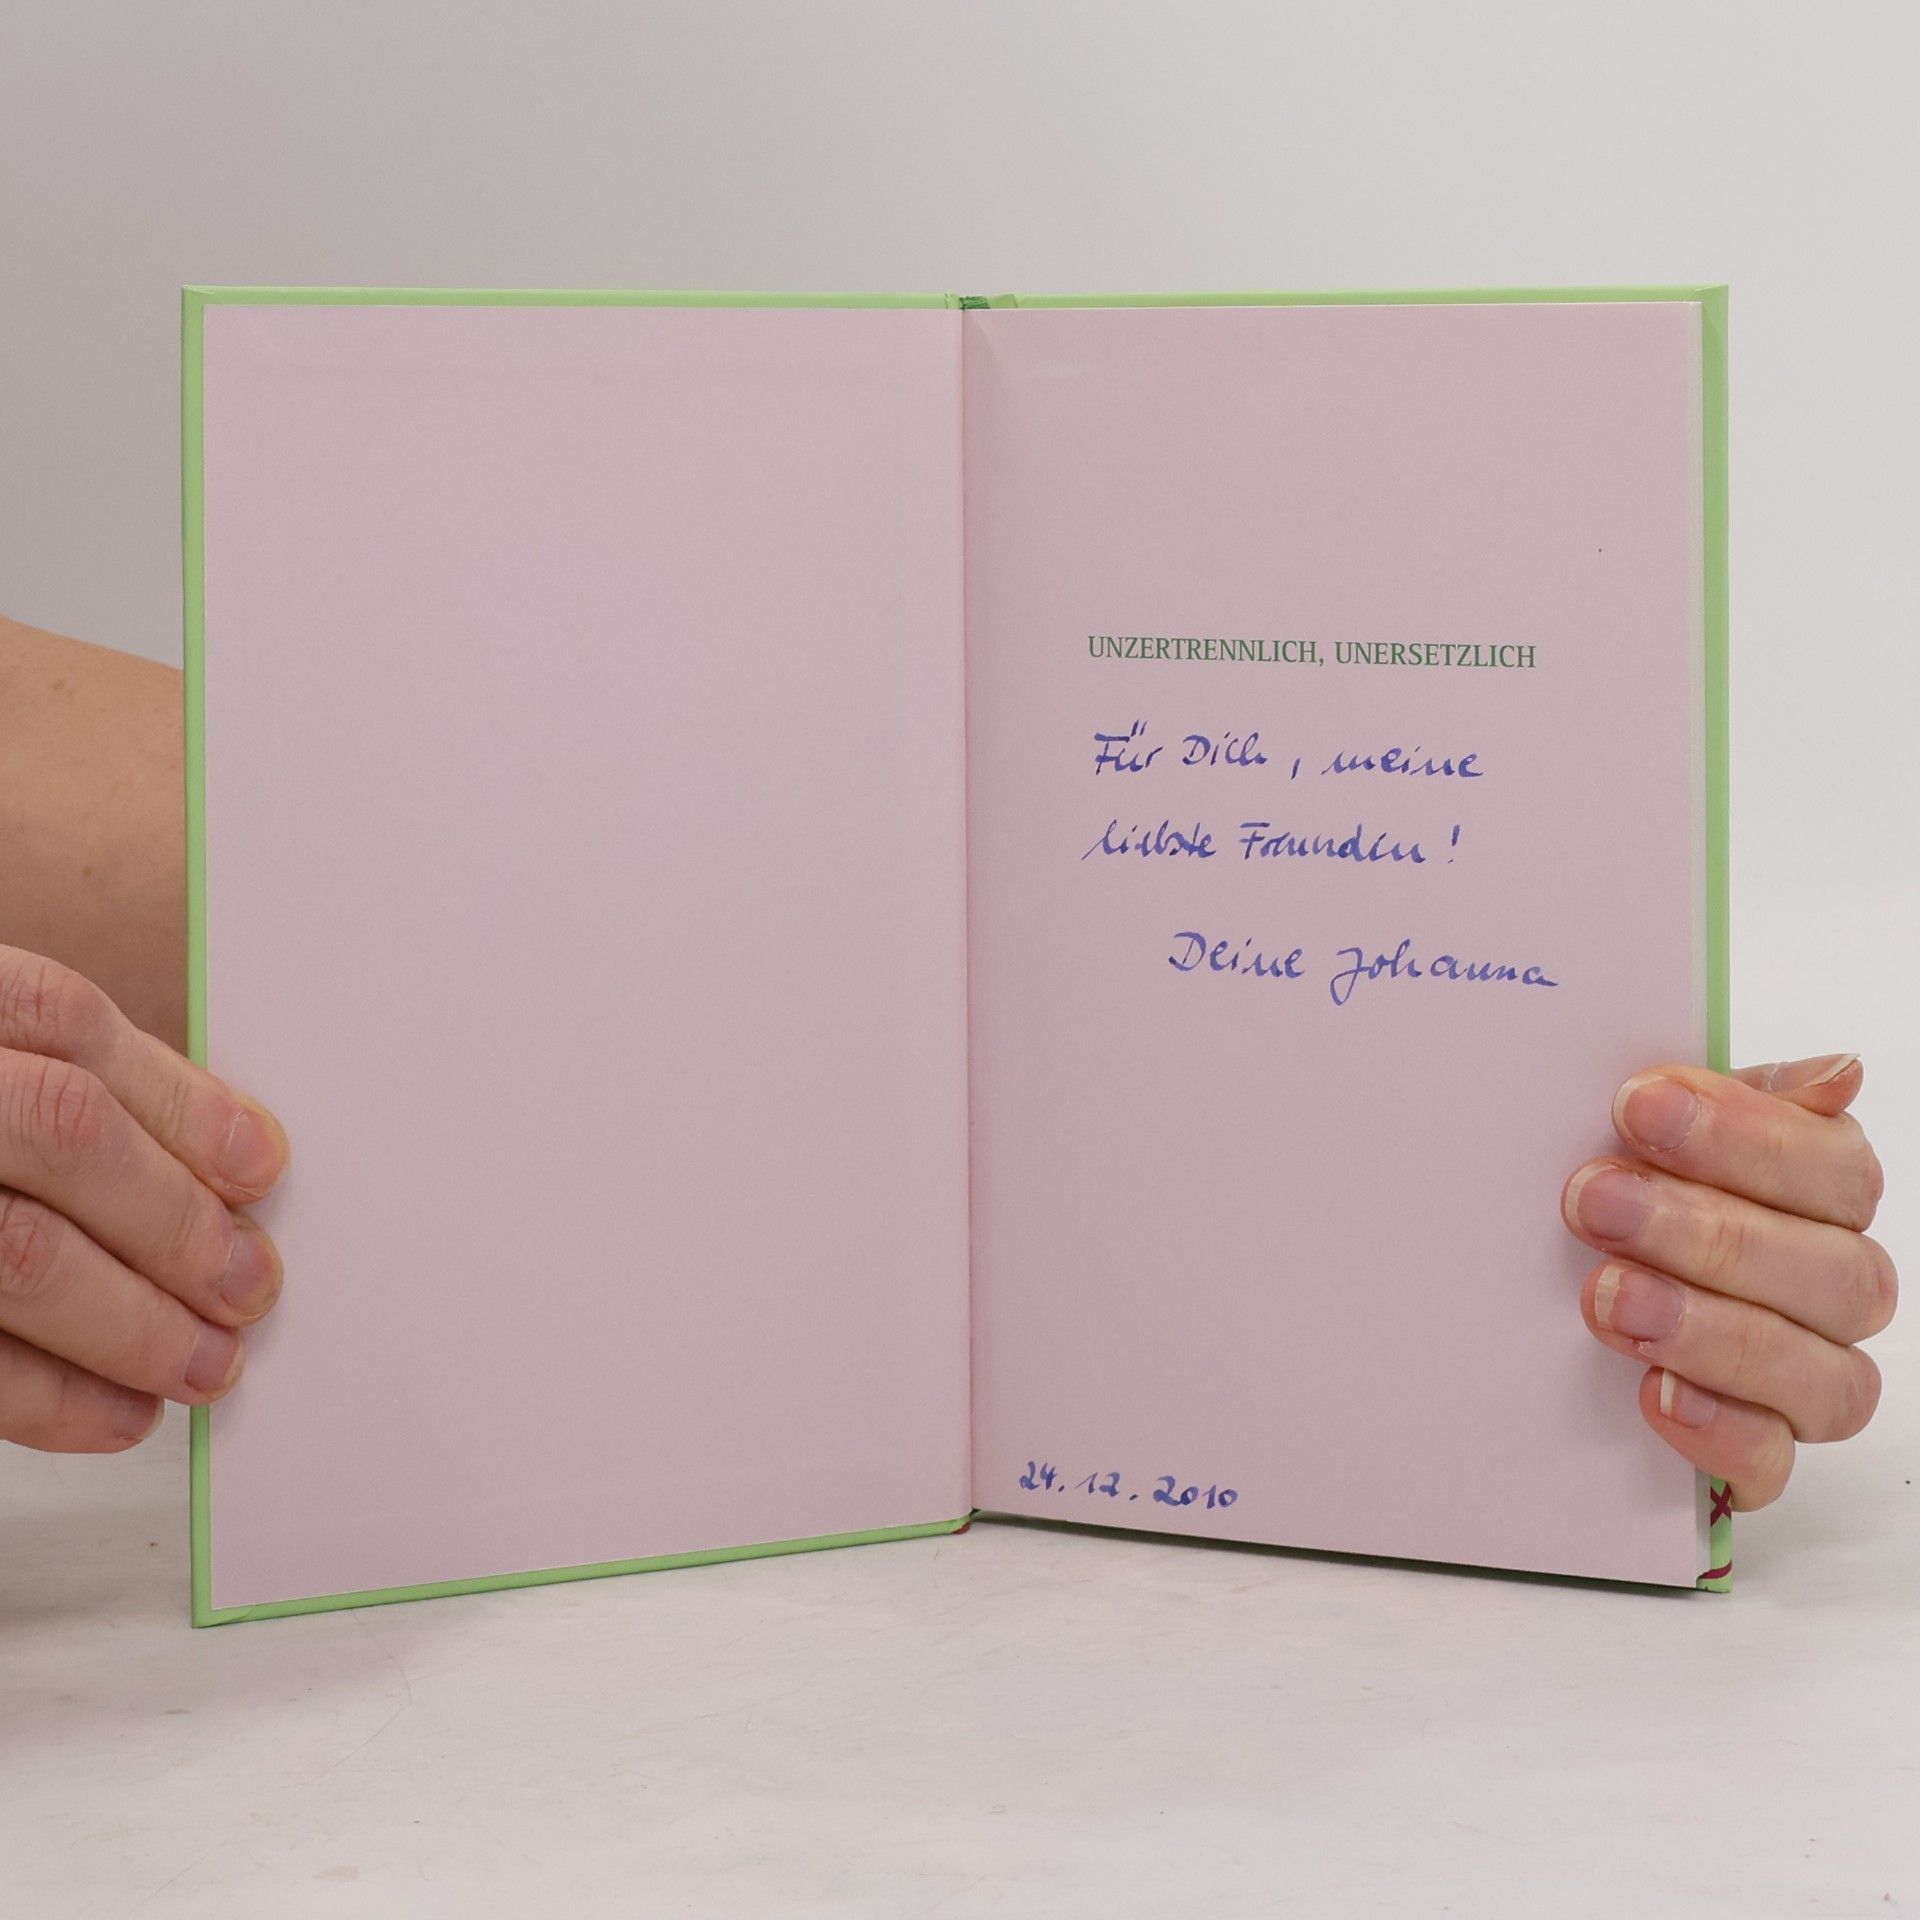 UNZERTRENNLICH, UNERSETZLICH
Für Dich, meine
liebste Freundin!
Deine Johanna
24.12.2010